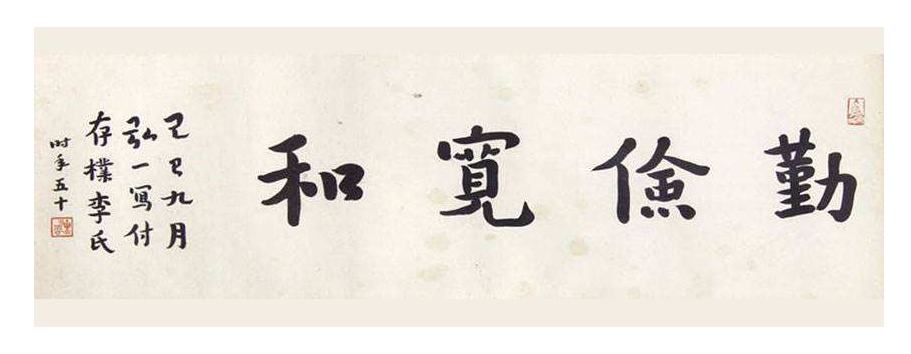 勤儉寬和
己巳九月
弘一寫付
存樸李氏
时年五十